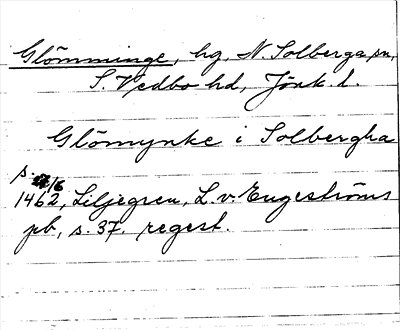 Glömminge, hg, N. Solberga sn,
S. Vedbo hd, Jönk. l.
Glömynke i Solbergha
s.
1462, Liljegren, L. v. Engeströms
pb, s. 37. regest.